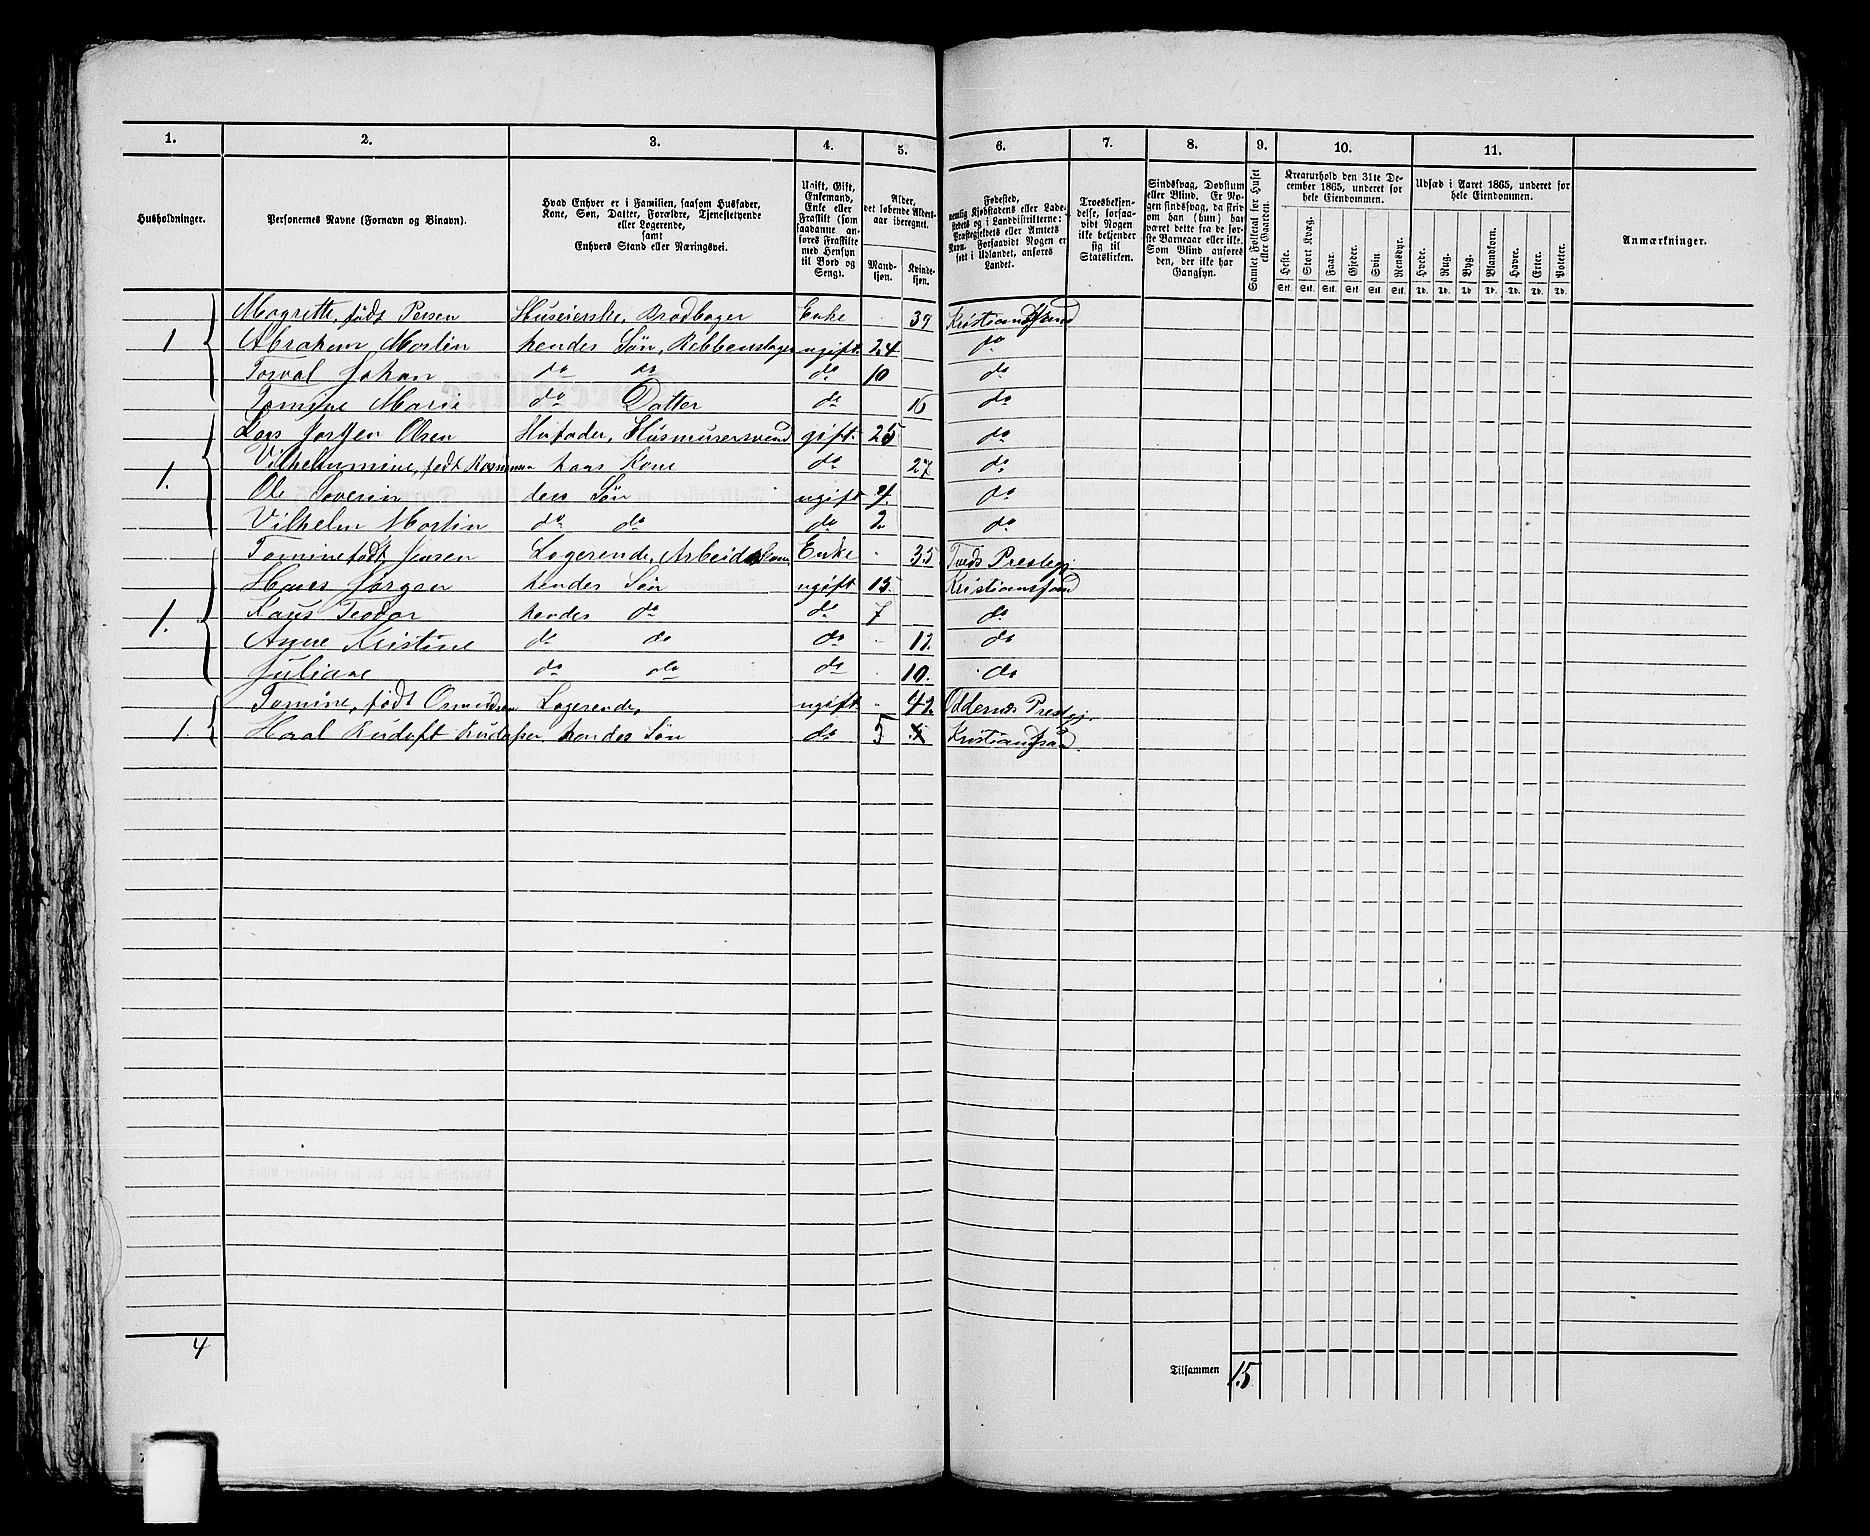 1. 2. 3. 4. 5. 6. 7. 8. 9. 10. 11.
Husholdninger.
Personernes Navne (Fornavn og Binavn).
Hvad Enhver er i Familien, saasom Husfader,
Kone, Søn, Datter, Forældre, Tjenestetyende
eller Logerende,
samt
Enhvers Stand eller Næringsvei.
Ugift, Gift,
Enkemand,
Enke eller
Fraskilt (som
saadanne an-
føres Fraskilte
med Hensyn
til Bord og
Seng).
Alder,
det løbende Alders-
aar iberegnet.
Mand-
kjøn.
Kvinde-
kjøn.
Fødested,
nemlig Kjøbstadens eller Lade-
stedets og i Landdistrikterne:
Præstegjeldets eller Amtets
Navn. Forsaavidt Nogen er
født i Udlandet, anføres
Landet.
Troesbekjen-
delse, forsaa-
vidt Nogen
ikke bekjender
sig til
Statskirken.
Sindssvag, Døvstum
eller Blind. Er No-
gen sindssvag, da skri-
ves om han (hun) har
været dette fra de før-
ste Barneaar eller ikke.
Som Blind anføres
den, der ikke har
Gangsyn.
Samlet Folketal for Huset
eller Gaarden.
Kreaturhold den 31te De-
cember 1865, underet for
hele Eiendommen.
Heste. Stort Kvæg. Faar. Gjeder. Svin Rensdyr.
Stk. Stk. Stk. Stk. Stk. Stk.
Udsæd i Aaret 1865, underet for
hele Eiendommen.
Hvede. Rug. Byg. Blandkorn. Havre. Erter. Poteter.
Td. Td. Td Td. Td. Td. Td.
Anmærkninger.
Magrette, født Persen Huseierske, Brødbager Enke 39 Kristiansand
1 Abraham Martin hendes Søn, Rebbenslager ugift. 24 do
Torval Johan do do do 10 do
Tomine Marie do Datter do 16 do
Lars Jørgen Olsen Husfader, Husmurersvend gift. 25 do
1. Vilhelmine, født hans Kone do 27 do
Ole Severin deres Søn ugift 4. do
Vilhelm Martin do do do 2. do
Tomine født Jensen Logerende, Enke 35 Tveds Prestegj.
Hans Jørgen hendes Søn ugift 15. Kristiansand
1. Teodor hendes do do 7 do
Anne Kristine do do do 12. do
Juliane do do do 10. do
Tomine, født Osmundsen Logerende, ugift. 42. Oddernæs Prestegj.
1. hendes Søn do 5 Kristiansand
4
Tilsammen 15